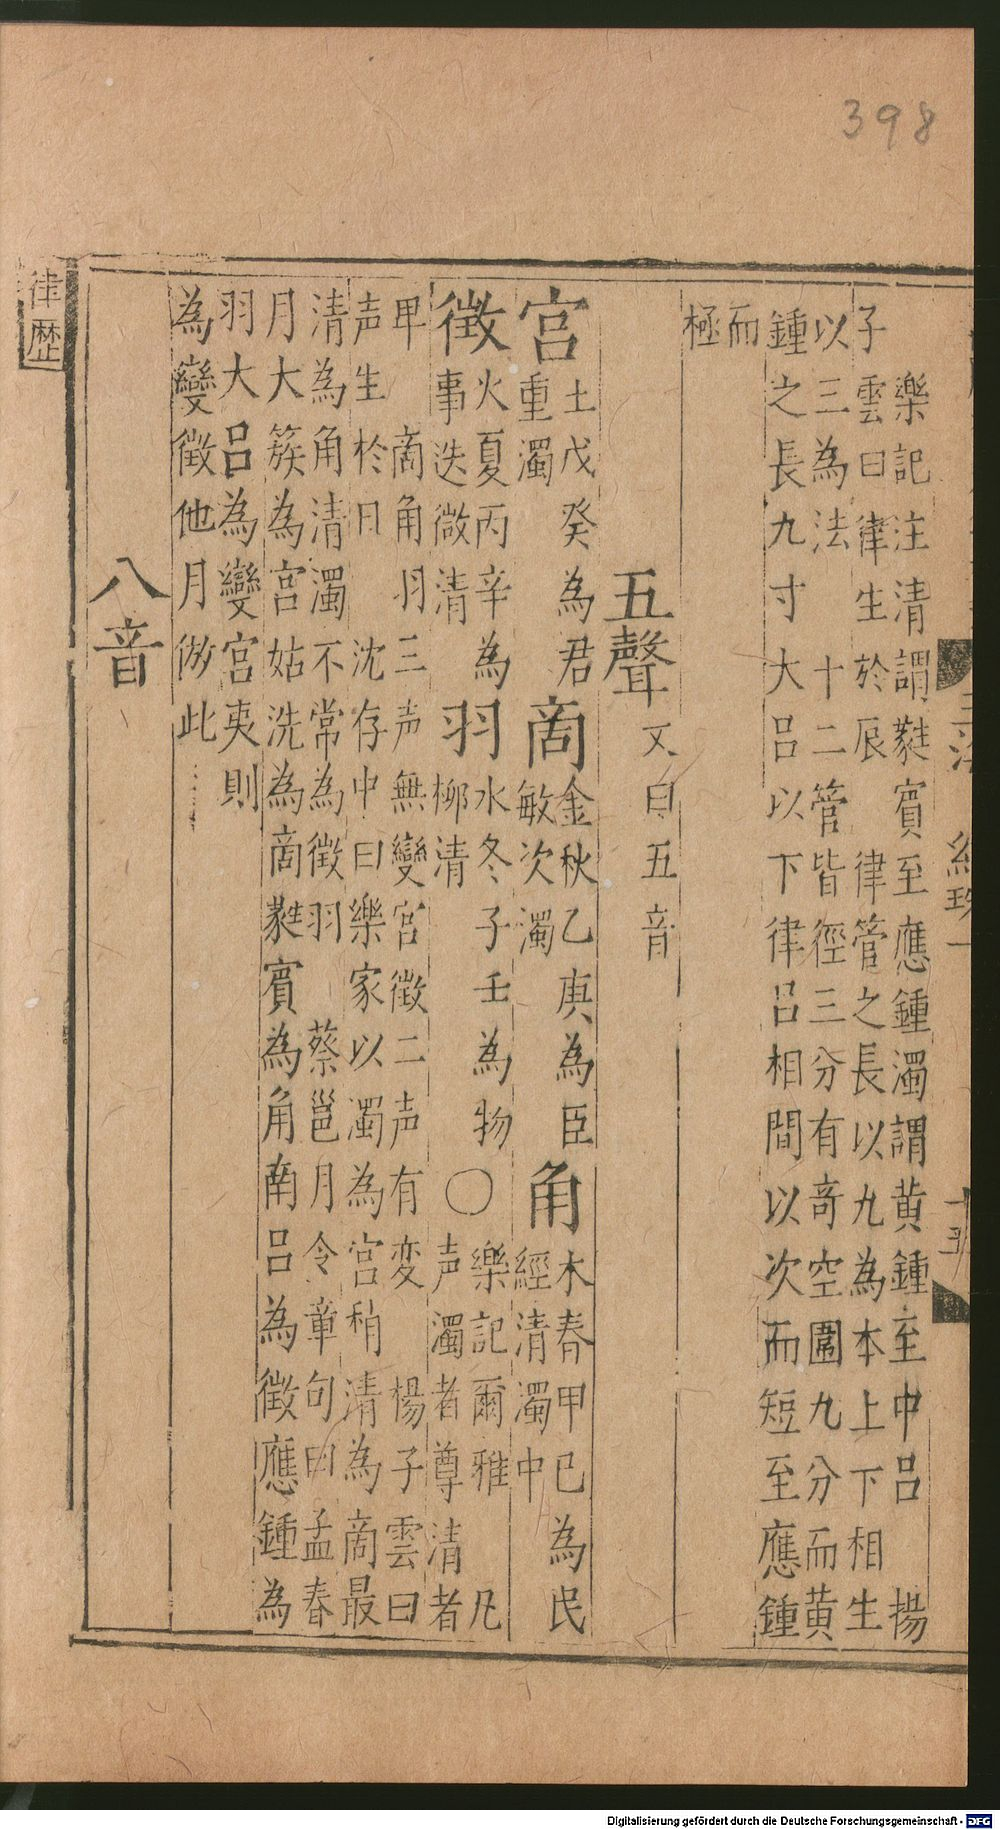 398
樂記注清謂蕤賓至應鍾濁謂黃鍾至中呂　揚
子雲曰律生於辰　律管之長以九為本上下相生
以三為法　十二管皆徑三分有竒空圍九分而黃
鍾之長九寸大呂以下律呂相間以次而短至應鍾
而
極
五聲又曰五音
宮土戊癸為君
重濁
商金秋乙庚為臣
敏次濁
角木春甲己為民
經清濁中
徵火夏丙辛為
事迭微清
羽水冬子壬為物
柳清
○樂記爾雅　凡
声濁者尊清者
卑　商角羽三声無變宮徵二声有変　楊子雲曰
声生於日　沈存中曰樂家以濁為宮稍清為商最
清為角清濁不常為徵羽　蔡邕月令章句曰孟春
月大簇為宮姑洗為商蕤賓為角南呂為徵應鍾為
羽大呂為變宮夷則
為變徵他月倣此
八音
律歷
十五